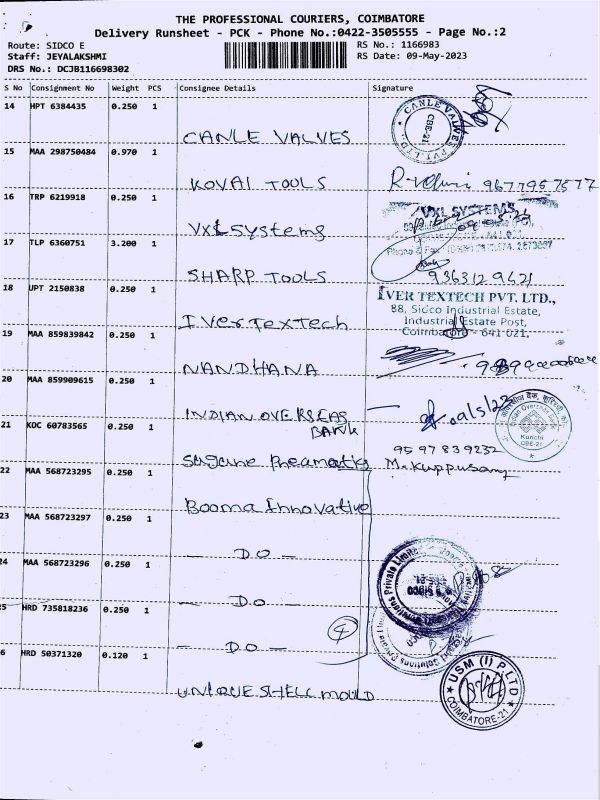 THE PROFESSIONAL COURIERS, COIMBATORE
Delivery Runsheet - PCK - Phone No.:0422-3505555 - Page No.:2
Route: SIDCO E RS No.: 1166983
Staff: JEYALAKSHMI RS Date: 09-May-2023
DRS No.: DCJB116698302
S No Consignment No Weight PCS Consignee Details Signature
14 HPT 6384435 0.250 1
CANLE VALVES
CANLE VALVES PVT. LTD
CBE-21
15 MAA 298750484 0.970 1
KOVAI TOOLS 9677957577
16 TRP 6219918 0.250 1
VXL Systems
VXL SYSTEMS
17 TLP 6360751 3.200 1
SHARP TOOLS 9363129421
18 UPT 2150838 0.250 1
IVER TEXTECH PVT. LTD.,
88, Sidco Industrial Estate,
Industrial Estate Post,
Coimbatore - 641 021.
IVer TexTech
19 MAA 859839842 0.250 1
NANDHANA
20 MAA 859909615 0.250 1
INDIAN OVERSEAS
BANK
Indian Overseas Bank
Kurichi
CBE-21
21 KOC 60783565 0.250 1
9597839232
Pneamatis M. Kuppusamy
22 MAA 568723295 0.250 1
Booma Innovative
23 MAA 568723297 0.250 1
- DO -
24 MAA 568723296 0.250 1
- DO -
25 HRD 735818236 0.250 1
- DO -
4
6 HRD 50371320 0.120 1
UNIQUE SHELL MOULD
USM (I) P LTD
COIMBATORE-21